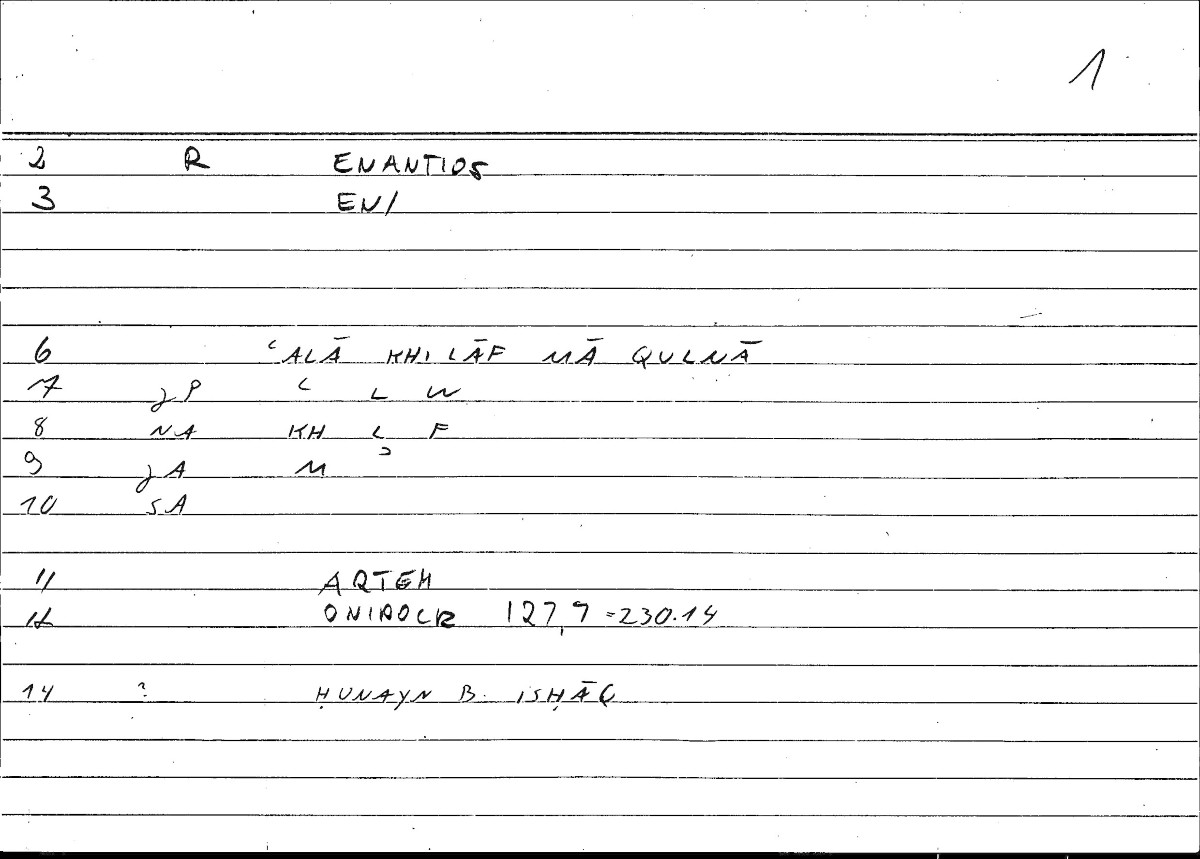 1
2 R ENANTIOS
3 EN/
6 ʿALĀ KHILĀF MĀ QULNĀ
7 jP ʿ L W
8 NA KH L F
9 jA M
10 SA
11 ARTEM
12 ONIROCR 127,9 = 230.14
14 ? ḤUNAYN B. ISḤĀQ